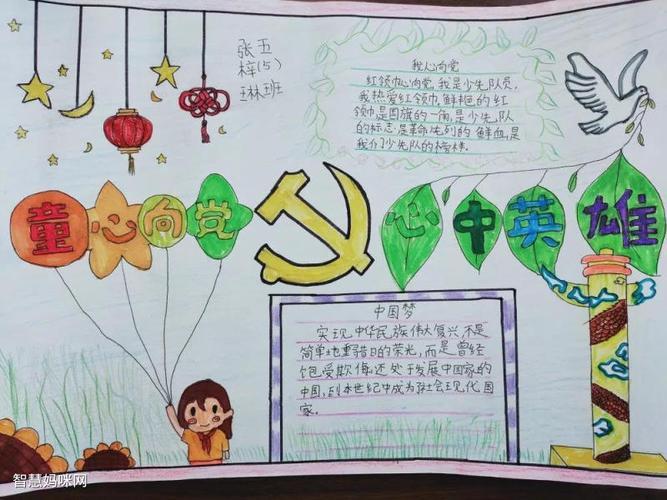 张 五
梓(5)
琳班
我心向党
红领巾心向党,我是少先队员,
我热爱红领巾,鲜艳的红
领巾是国旗的一角,是少先队
的标志,是革命先烈的鲜血,是
我们少先队的榜样。
童心向党
心中英雄
中国梦
实现中华民族伟大复兴,不是
简单地重踏昔日的荣光,而是曾经
饱受欺侮,还处于发展中国家的
中国,到本世纪中成为社会现代国
家。
智慧妈咪网